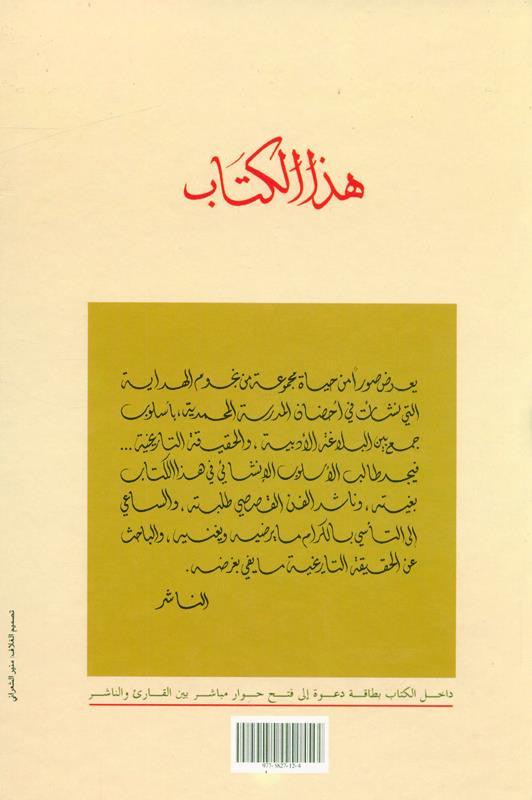 هذا الكتاب
يعرض صوراً من حياة مجموعة من نجوم الهداية
التي نشأت في أحضان المدرسة المحمدية، بأسلوب
جمع بين البلاغة الأدبية، والحقيقة التاريخية...
فيجد طالب الأسلوب الإنشائي في هذا الكتاب
بغيته، وناشد الفن القصصي طلبته، والساعي
إلى التأسي بالكرام ما يرضيه ويغنيه، والباحث
عن الحقيقة التاريخية ما يفي بغرضه.
الناشر
داخل الكتاب بطاقة دعوة إلى فتح حوار مباشر بين القارئ والناشر
977-5827-12-4
تصميم الغلاف: منير الشعراني